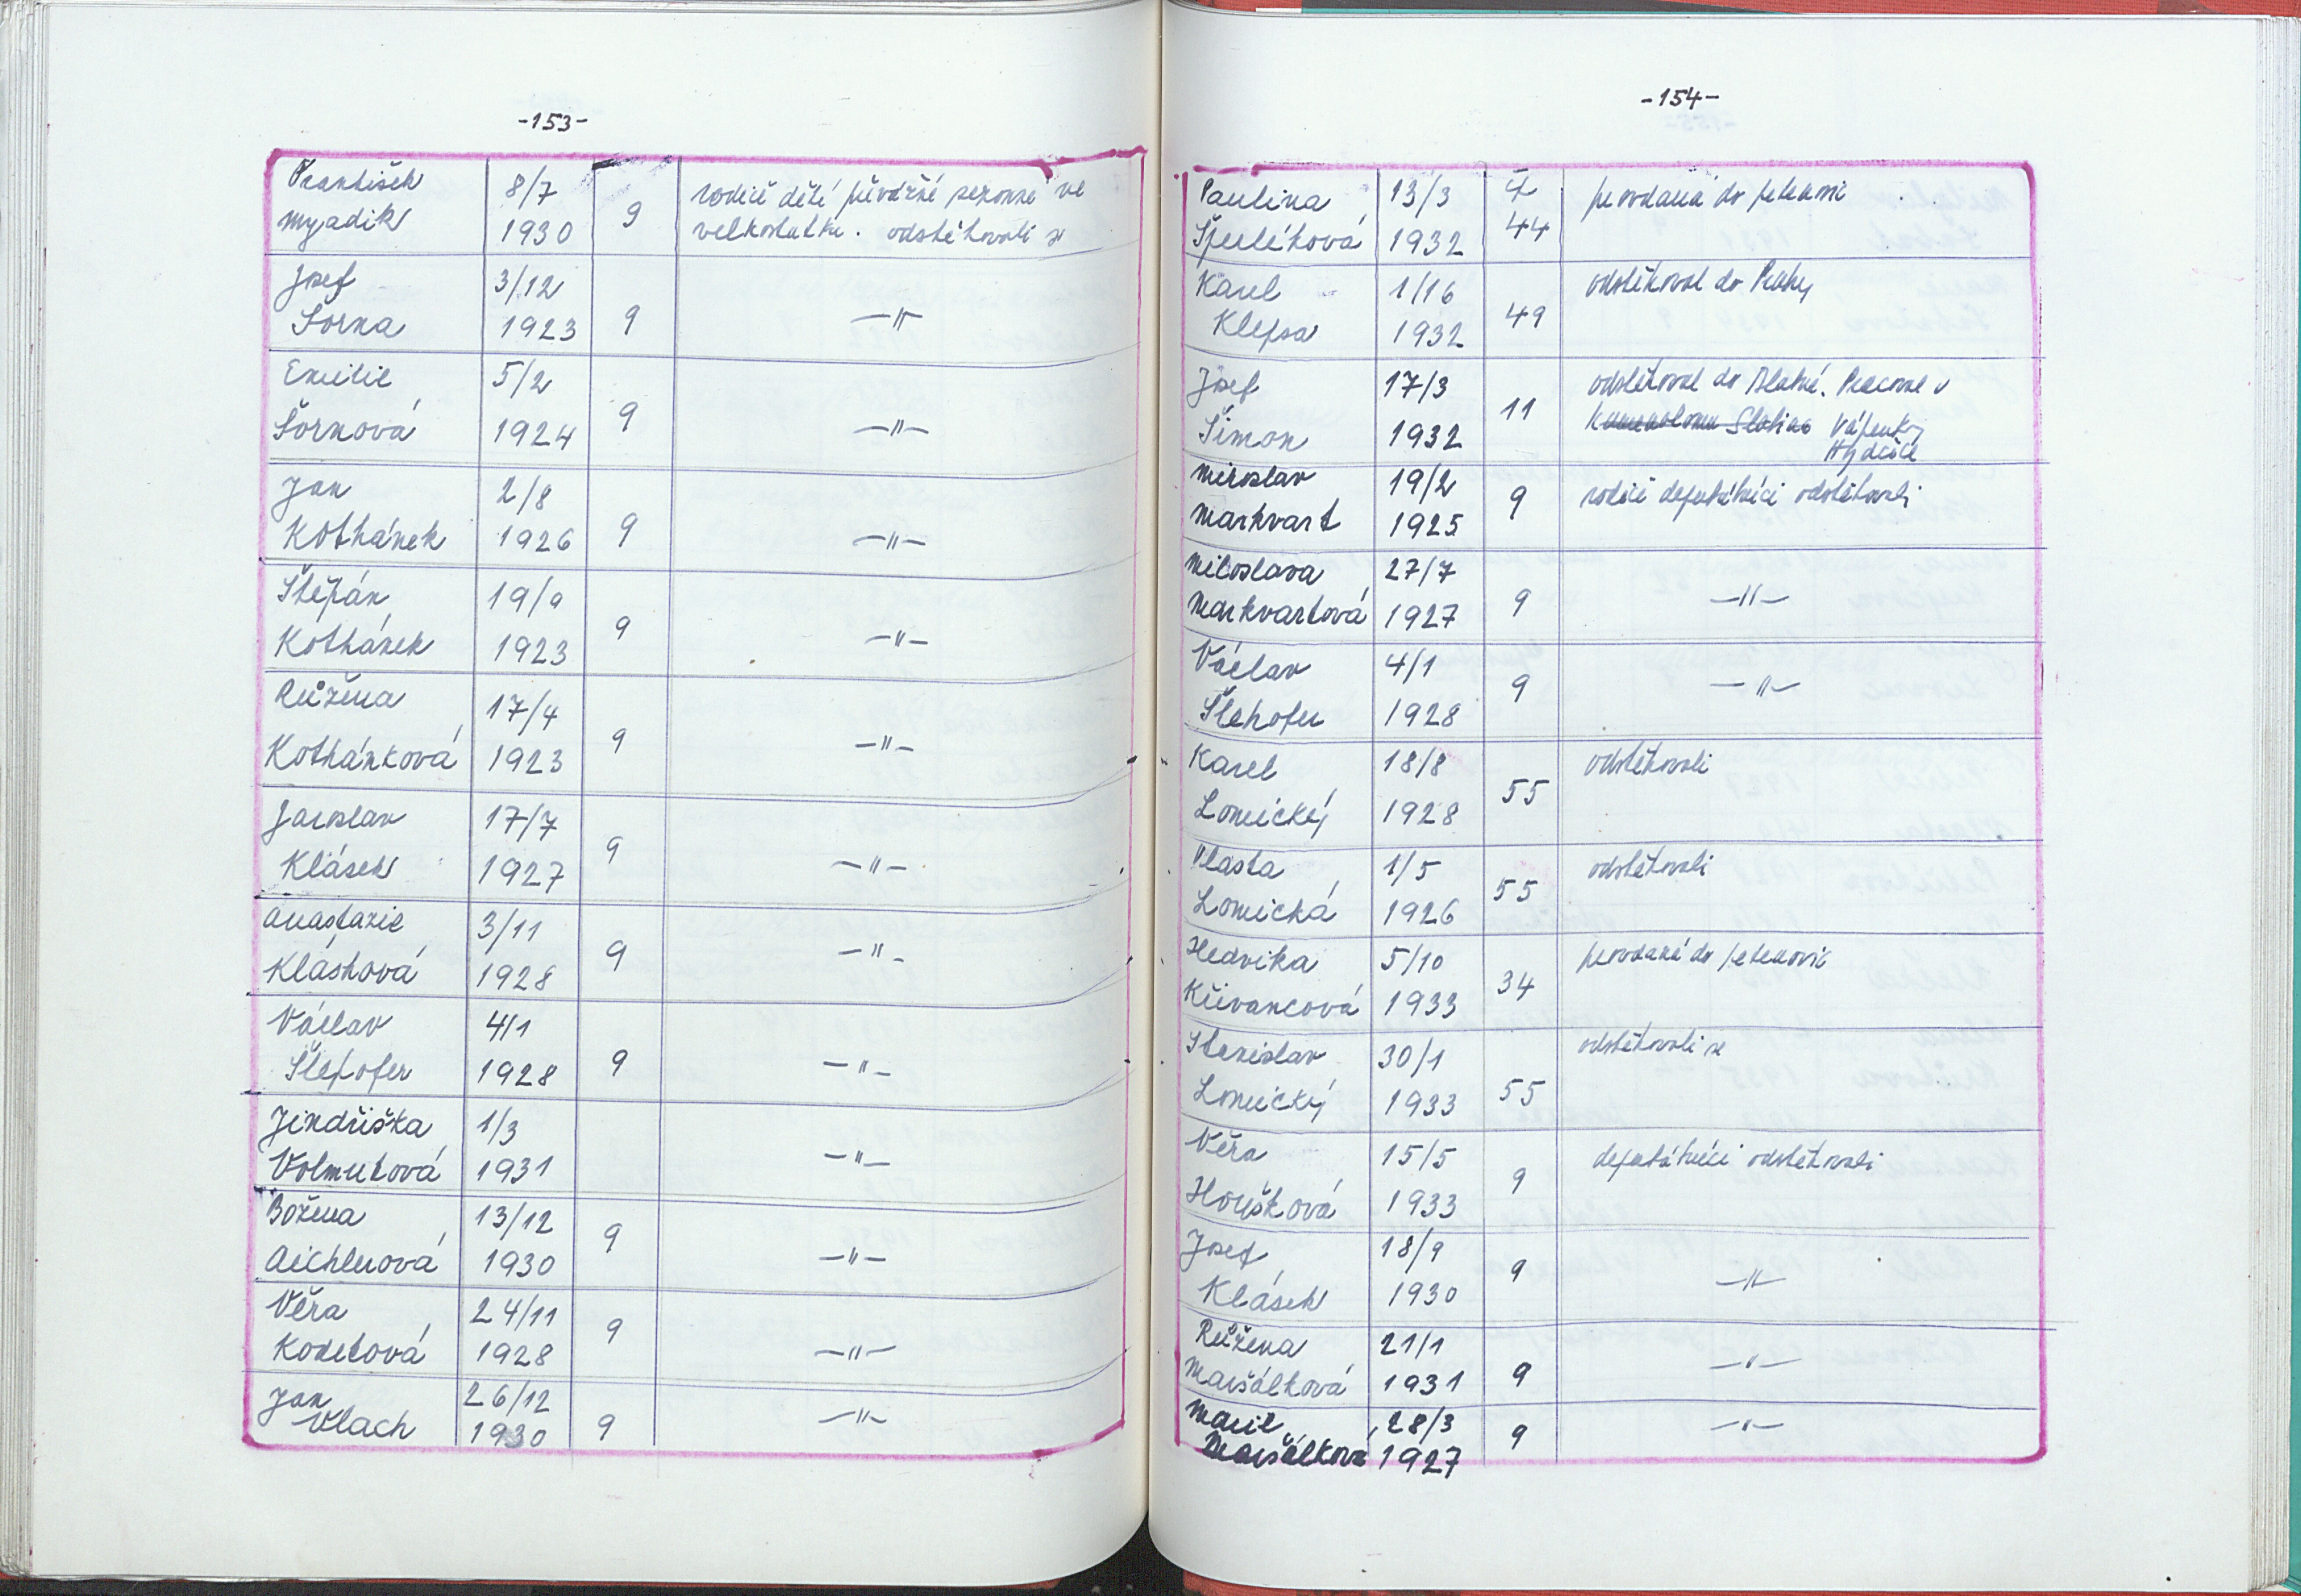 -153-
František 8/7 rodiče dětí převážně sezonně ve
Myadik 1930 9 velkostatku. odstěhovali se
Josef 3/12
Šorna 1923 9 -"-
Emilie 5/2
Šornová 1924 9 -"-
Jan 2/8
Kothánek 1926 9 -"-
Štěpán 19/9
Kothánek 1923 9 -"-
Růžena 17/4
Kothánková 1923 9 -"-
Jaroslav 17/7
Klásek 1927 9 -"-
Anastazie 3/11
Klásková 1928 9 -"-
Václav 4/1
Šlehofer 1928 9 -"-
Jindřiška 1/3
Volmutová 1931 -"-
Božena 13/12
Aichlerová 1930 9 -"-
Věra 24/11
Kodetová 1928 9 -"-
Jan 26/12
Vlach 1930 9 -"-
-154-
Paulina 13/3 č provdaná do
Špulíková 1932 44
Karel 1/16 odstěhoval do Prahy
Klepsa 1932 49
Josef 17/3 odstěhoval do Blatné. Pracoval v
Šimon 1932 11 Kamenolomu Slatina Vápenky
Hydčice
Miroslav 19/2 rodiče deputátníci odstěhovali
Markvart 1925 9
Miloslava 27/7
Markvartová 1927 9 -"-
Václav 4/1
Šlehofer 1928 9 -"-
Karel 18/8 odstěhovali
Lomický 1928 55
Vlasta 1/5 odstěhovali
Lomická 1926 55
Hedvika 5/10 provdaná do
Křivancová 1933 34
Stanislav 30/1 odstěhovali se
Lomický 1933 55
Věra 15/5 deputátníci odstěhovali
Houšková 1933 9
Josef 18/9
Klásek 1930 9 -"-
Růžena 21/1
Maršálková 1931 9 -"-
Marie 28/3
Maršálková 1927 9 -"-